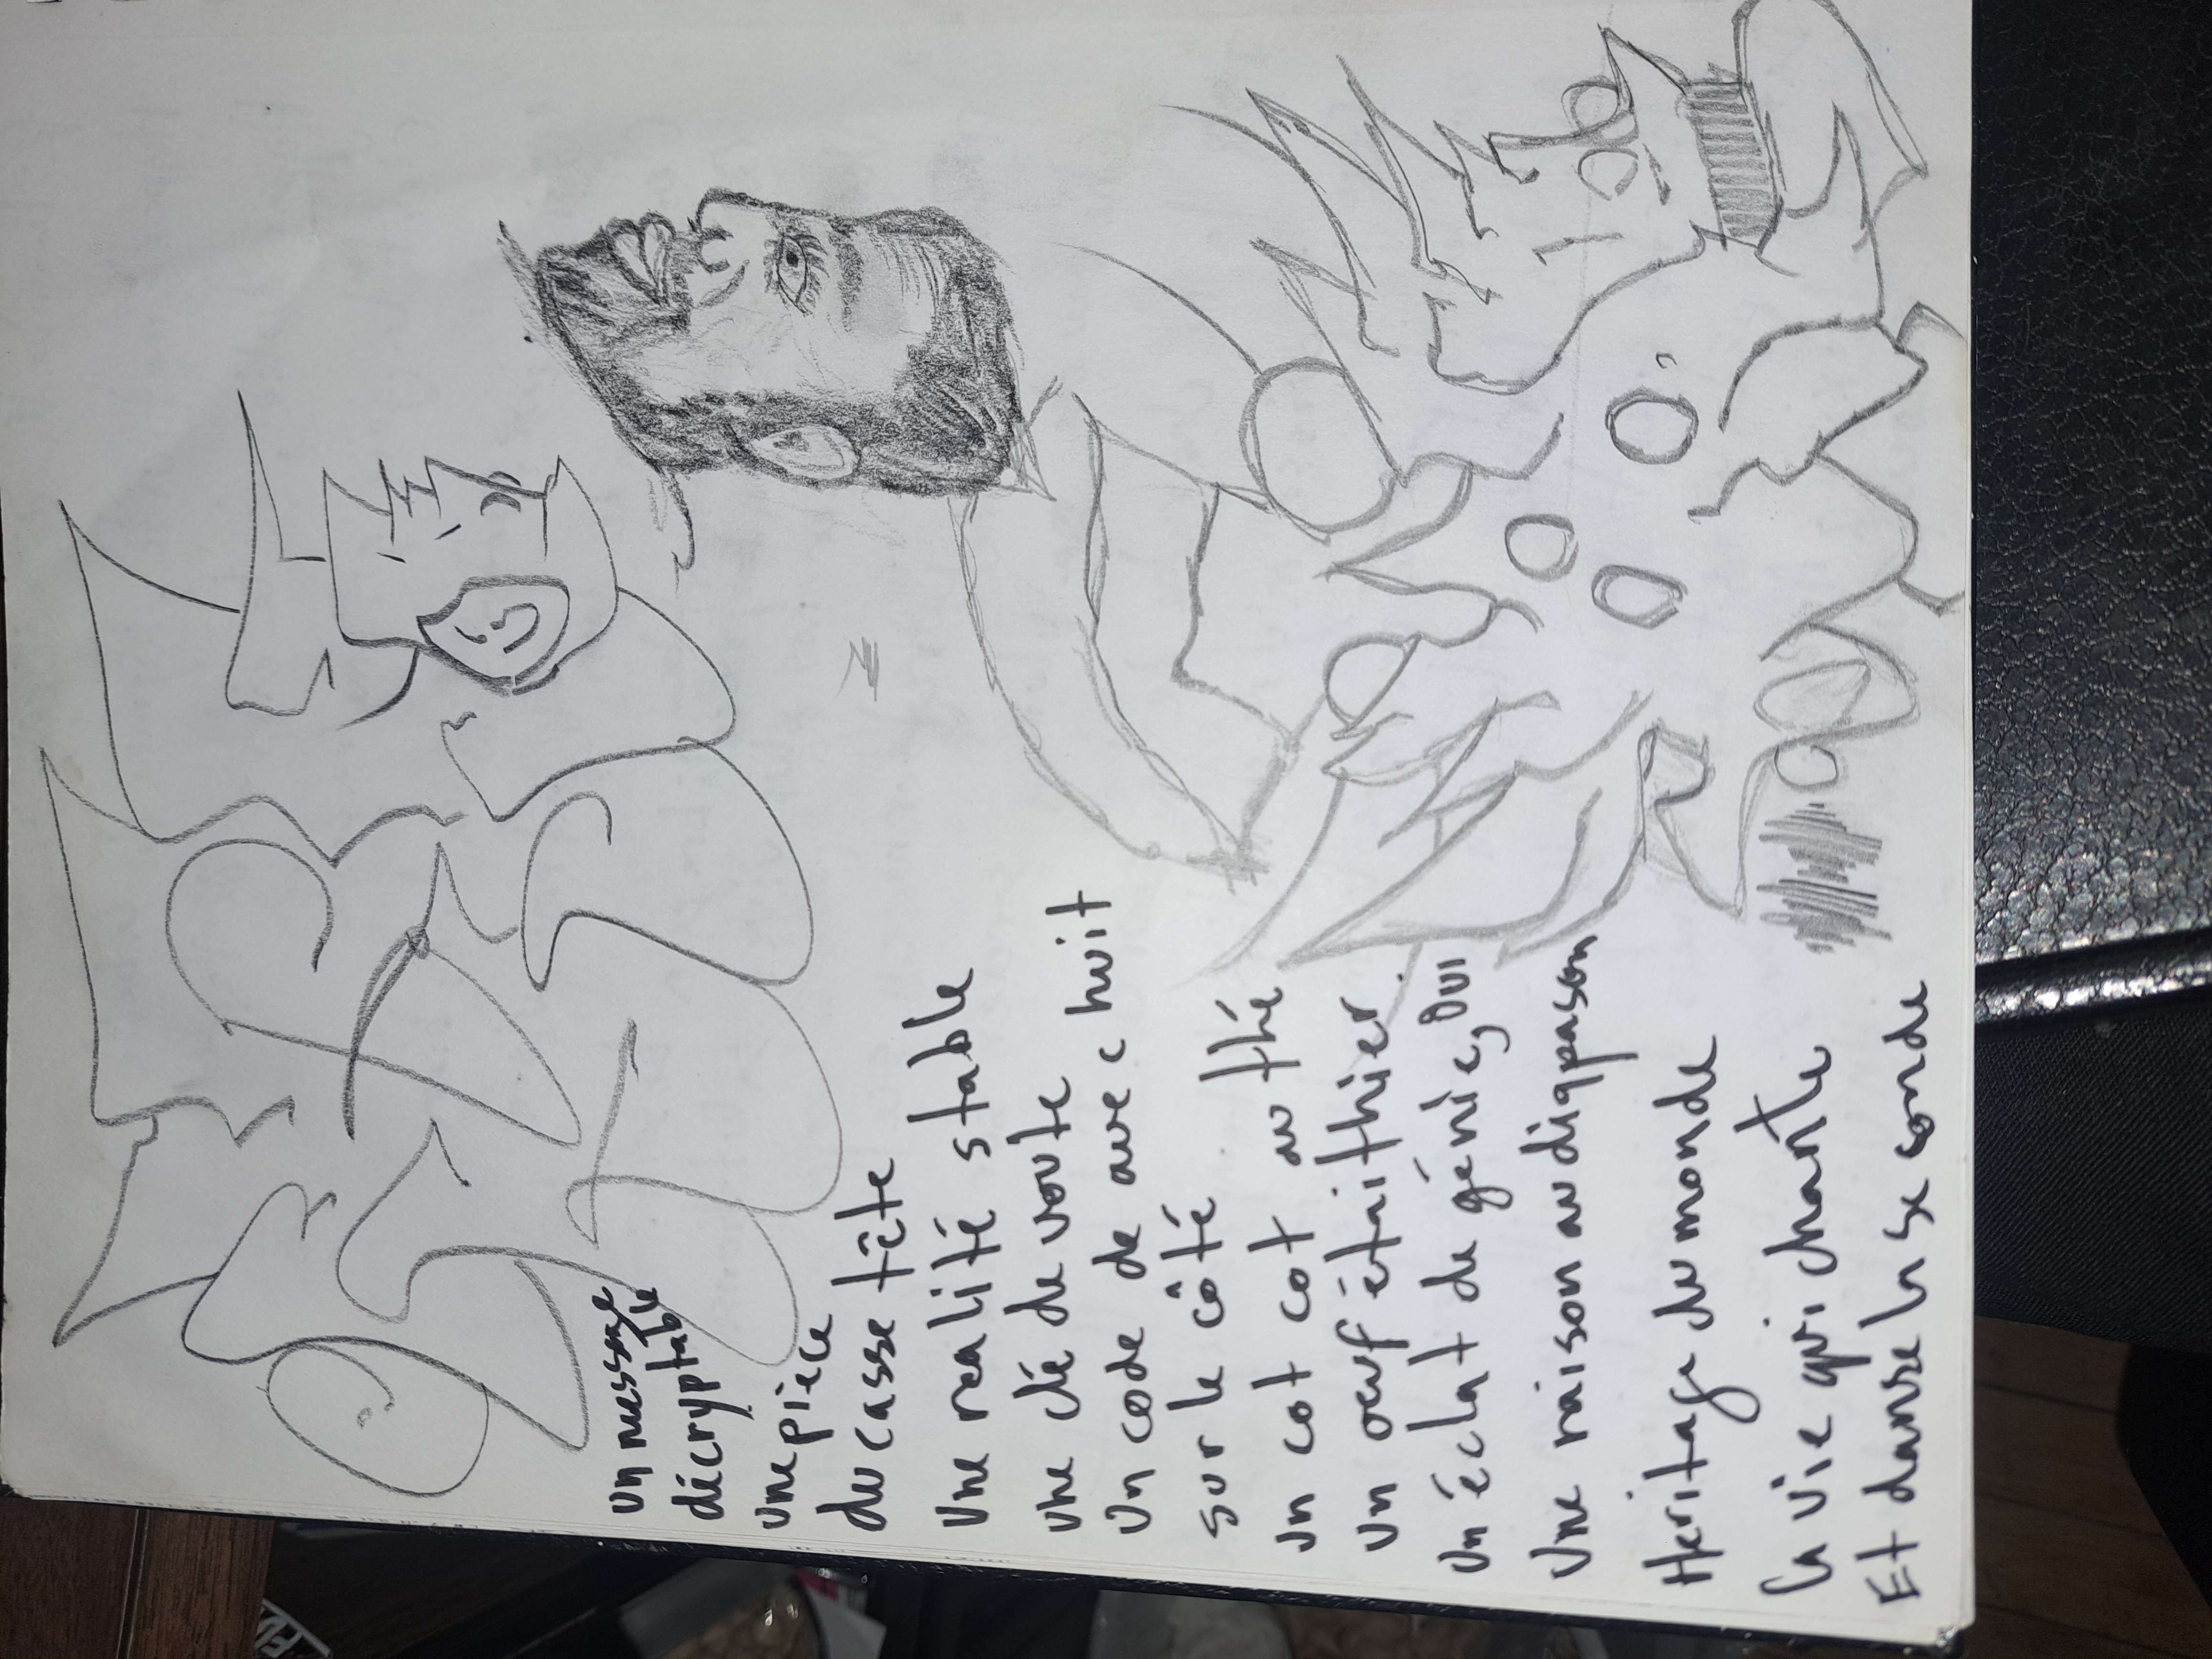 un message
décryptable
une pièce
du casse tête
une realité stable
une clé de voute
un code de avec huit
sur le côté
un cot cot au thé
un oeuf étaithier
un éclat de génie, oui
Une raison au diapason
Heritage du monde
la vie qui chante
Et danse la seconde